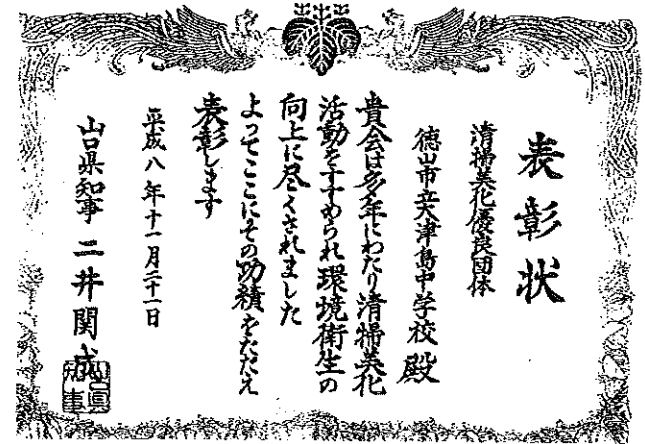 表彰状
清掃美化優良団体
徳山市立大津島中学校 殿
貴会は多年にわたり清掃美化
活動をすすめられ環境衛生の
向上に尽くされました
よってここにその功績をたたえ
表彰します
平成八年十一月二十一日
山口県知事 二井関成
山口県知事